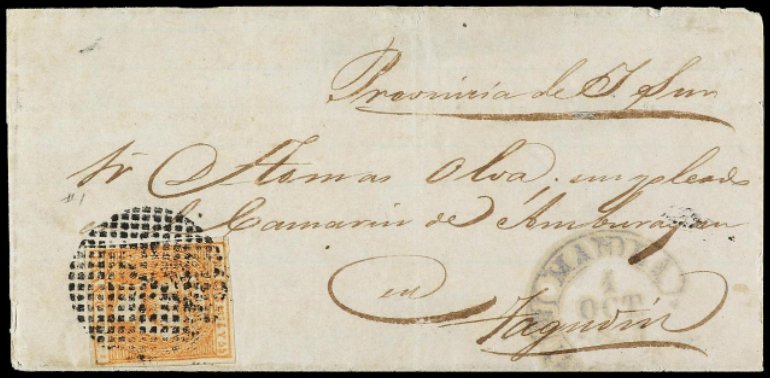 Provincia de I. Sur
Sr. Dn Tomas Olva. empleado
en el Camarin de Amburayan
en
Tagudin
MANILA
1
OCT